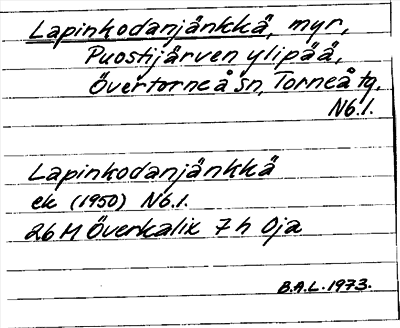 Lapinkodanjänkkä, myr,
Puostijärven ylipää,
Övertorneå sn, Torneå tg.
Nb.1.
Lapinkodanjänkkä
ek (1950) Nb.1.
26 M Överkalix 7 h Oja
B.A.L. 1973.